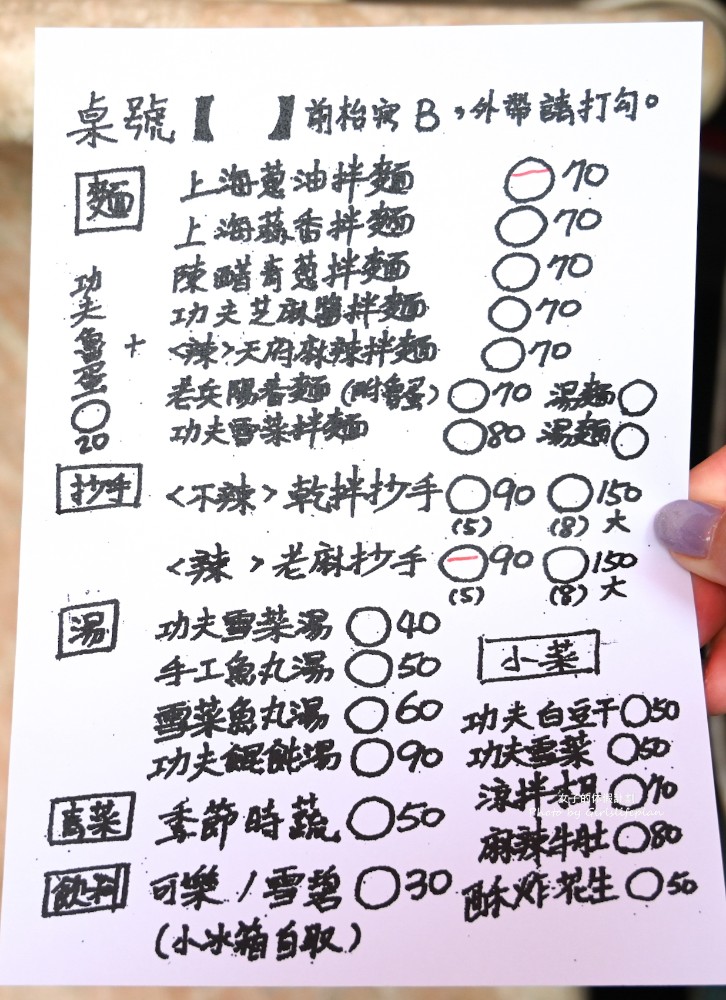 桌號【 】前枱寫B,外帶請打勾。
麵
上海蔥油拌麵 ○70
上海蒜香拌麵 ○70
陳醋青蔥拌麵 ○70
功夫芝麻醬拌麵 ○70
<辣>天府麻辣拌麵 ○70
老兵陽春麵(附魯蛋) ○70 湯麵○
功夫雪菜拌麵 ○80 湯麵○
功夫魯蛋○20 +
抄手
<不辣>乾拌抄手 ○90 ○150
(5) (8) 大
<辣>老麻抄手 ○90 ○150
(5) (8) 大
湯
功夫雪菜湯 ○40
手工魚丸湯 ○50
雪菜魚丸湯 ○60
功夫餛飩湯 ○90
青菜
季節時蔬 ○50
飲料
可樂/雪碧 ○30
(小冰箱自取)
小菜
功夫白豆干○50
功夫雪菜 ○50
涼拌 ○70
麻辣牛肚○80
酥炸花生○50
Photo by Girlslifeplan